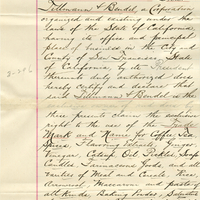 Tillmann & Bendel, a Corporation
organized and existing under the
laws of the State of California,
having its office and principal
place of business in the City and
County of San Francisco, State
of California, by its President
thereunto duly authorized does
hereby certify and declare that
said Tillmann & Bendel is the
these presents claims the exclusive
right to the use of the Trade
Mark and Name for Coffee, Tea
Spices, Flavoring Extracts, Ginger
Vinegar, Catsup, Oil, Pickles, Soap
Candles, Farinaceous Food, and all
varieties of Meal and Cereals, Rice
Macaroni and paste of
all kinds, Baking Powder, Saleratus